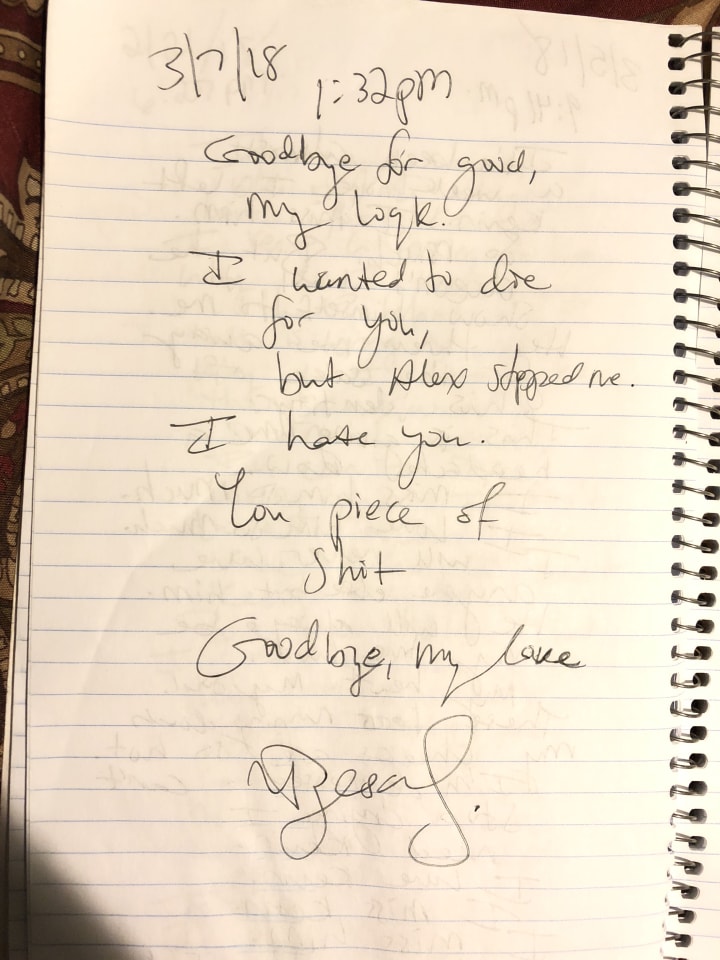 3/7/18 1:32pm
Goodbye for good,
my loqk.
I wanted to die
for you,
but Alex stopped me.
I hate you.
You piece of
Shit
Goodbye, my love